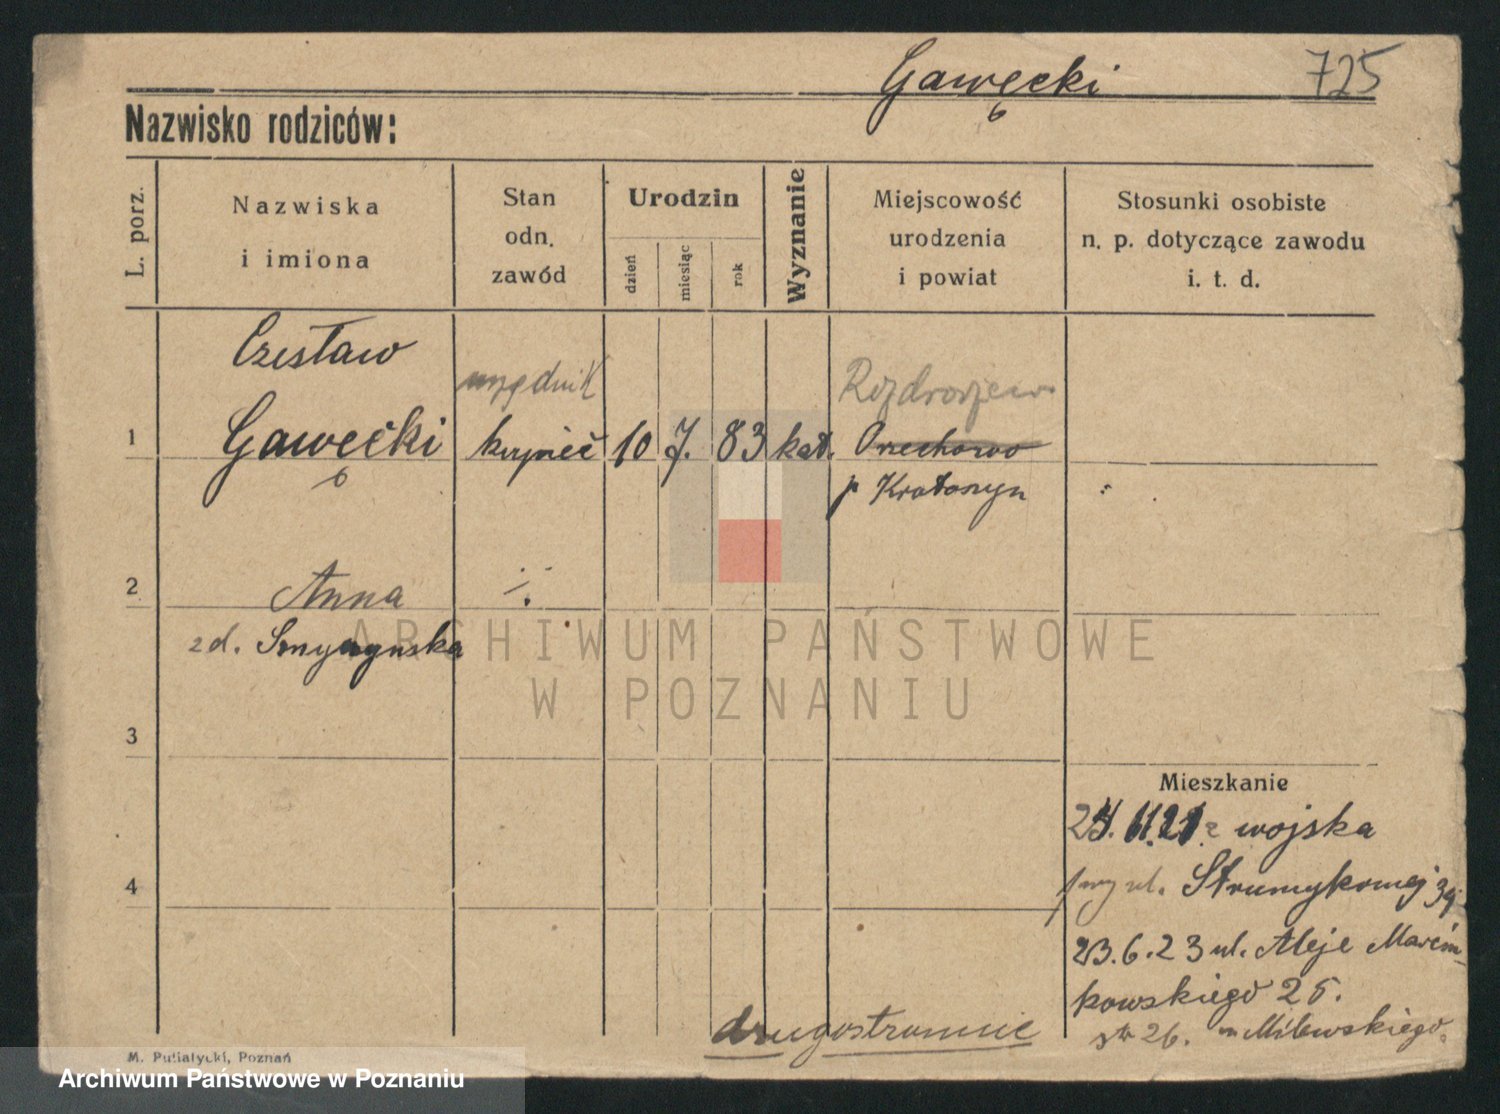 Gawęcki 725
Nazwisko rodziców:
L. porz.
Nazwiska
i imiona
Stan
odn.
zawód
Urodzin
dzień
miesiąc
rok
Wyznanie
Miejscowość
urodzenia
i powiat
Stosunki osobiste
n. p. dotyczące zawodu
i. t. d.
Czesław
urzędnik
1 Gawęcki kupiec 10 7. 83 kat. Orzechowo
p Krotoszyn
2 Anna
zd.
ARCHIWUM PAŃSTWOWE
W POZNANIU
3
Mieszkanie
11.21 z wojska
4
ul. Strumykowej
23.6.23 ul. Aleje Marcin-
kowskiego 25.
26. Milewskiego.
drugostronnie
M. Putiatycki, Poznań
Archiwum Państwowe w Poznaniu